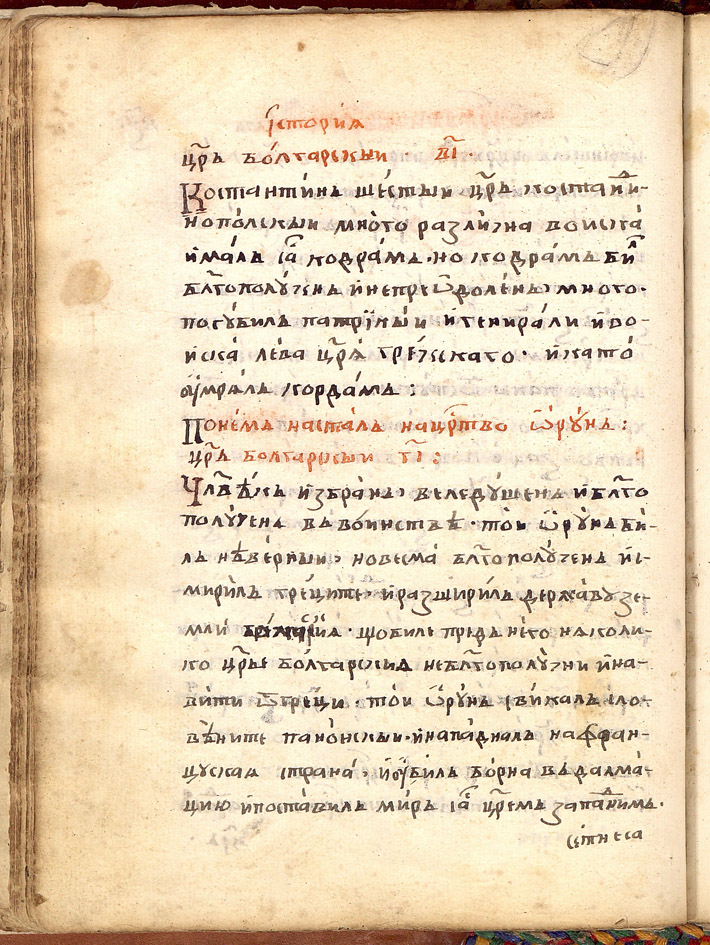 Історїѧ
цр҃ь болгарскыи · в҃і ·
Костантинь шестыи цр҃ь костан̾ди-
нополскыи много различна воиска
ималь съ кодрамь, но кодрамь биль
бл҃гополꙋчень и непреѡдолень, много
погꙋбиль патрїкыи и генирали и во-
иска лева цр҃ѧ греческаго · и като
оумраль кордамь :
Понемь насталь на цр҃тво Ѡрꙋнь :
цр҃ь болгарскыи г҃і :
Чл҃вѣкь избрань, веледꙋшень и бл҃го
полꙋчень вь воинствѣ · тои Ѡрꙋнь би-
ль невѣрныи, но весма бл҃гополꙋчень и с-
мириль греците, и разшириль державꙋ зе-
мли · що биле предь него наколи-
ко цр҃ье болгарскиѧ неблг҃ополꙋчни и на-
вити ѿ греци · тои Ѡрꙋнь свикаль сло-
вѣните панонскыи · и нападналь на фран-
цꙋскаѧ страна, и оубиль борна вь далма-
цию и поставиль мирь съ цр҃емь западнимь ·